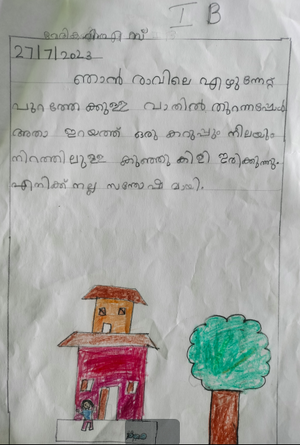 I B
27/7/2023
ഞാൻ രാവിലെ എഴുന്നേറ്റ്
പുറത്തേക്കുള്ള വാതിൽ തുറന്നപ്പോൾ
അതാ ഇറയത്ത് ഒരു കറുപ്പും നീലയും
നിറത്തിലുള്ള കുഞ്ഞു കിളി ഇരിക്കുന്നു.
എനിക്ക് നല്ല സന്തോഷമായി.